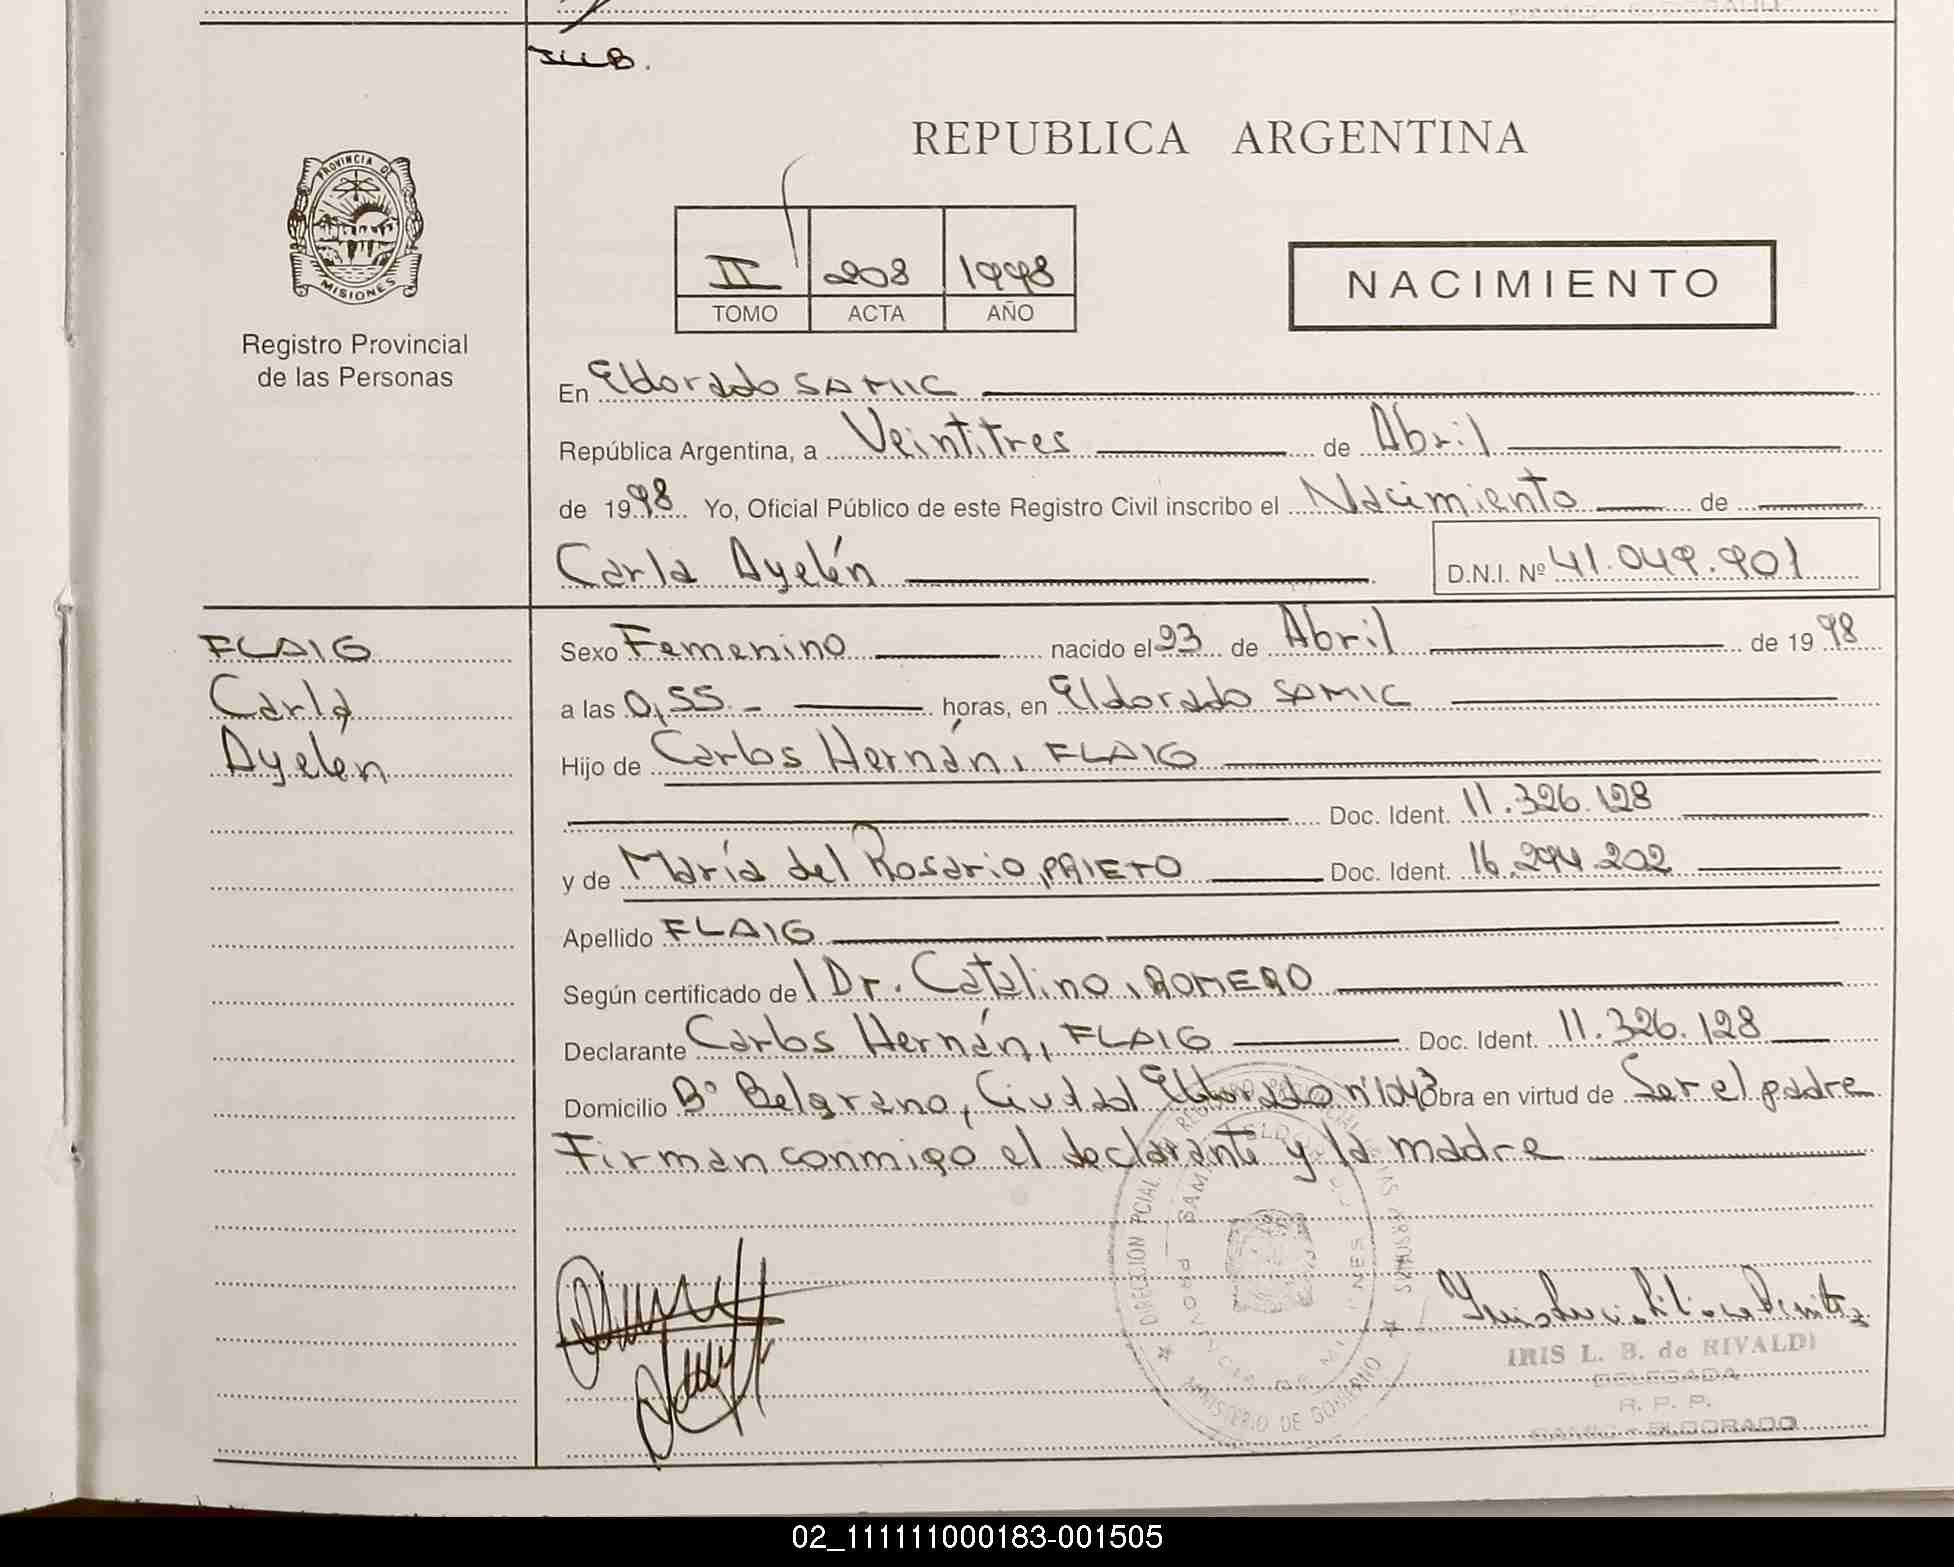 REPUBLICA ARGENTINA
PROVINCIA DE
MISIONES
Registro Provincial
de las Personas
II 208 1998
TOMO ACTA AÑO
NACIMIENTO
En Eldorado SAMIC
República Argentina, a Veintitres de Abril
de 1998 Yo, Oficial Público de este Registro Civil inscribo el Nacimiento de
Carla Ayelén D.N.I. Nº 41.049.901
FLAIG
Carla
Ayelén
Sexo Femenino nacido el 23 de Abril de 1998
a las 0,55 horas, en Eldorado SAMIC
Hijo de Carlos Hernán, FLAIG
Doc. Ident. 11.326.128
y de María del Rosario, PRIETO Doc. Ident. 16.294.202
Apellido FLAIG
Según certificado del Dr. Catalino, ROMERO
Declarante Carlos Hernán, FLAIG Doc. Ident. 11.326.128
Domicilio Bº Belgrano, Ciudad Eldorado nº1043 Obra en virtud de Ser el padre
Firman conmigo el declarante y la madre
MINISTERIO DE GOBIERNO
IRIS L. B. de RIVALDI
DELEGADA
R. P. P.
SAMIC - ELDORADO
02_111111000183-001505